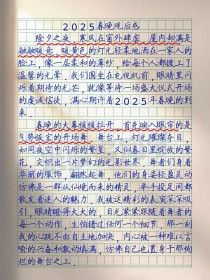 2025春晚观后感
除夕之夜，寒风在窗外肆虐，屋内却满是
融融暖意，暖黄的灯光轻柔地洒在一家人的
脸上，像一层柔和的薄纱，给每个人都镀上了
温馨的光晕。我们围坐在电视机前，眼睛里闪
烁着期待的光芒，就像等待一场盛大仪式开场
的虔诚信徒，满心期许着2025年春晚的
到来。
春晚的大幕缓缓拉开，首先映入眼帘的是
气势恢宏的开场舞。舞台上，灯光璀璨夺目，
如同夜空中闪烁的繁星，又似春日里绽放的繁
花，交织出一片梦幻的光影世界。舞者们身着
华丽的服饰，翩翩起舞，他们的身姿轻盈灵动
仿佛是一群从仙境而来的精灵，举手投足间都
散发着迷人的魅力。我被这精彩的表演深深吸
引，眼睛瞪得大大的，目光紧紧跟随着舞者的
每一个动作，生怕错过任何一个细节。那一刻
我的心跳不由自主地加快，内心被一种难以言
喻的兴奋和激动填满，仿佛自己也置身于那绚
烂的舞台之上。